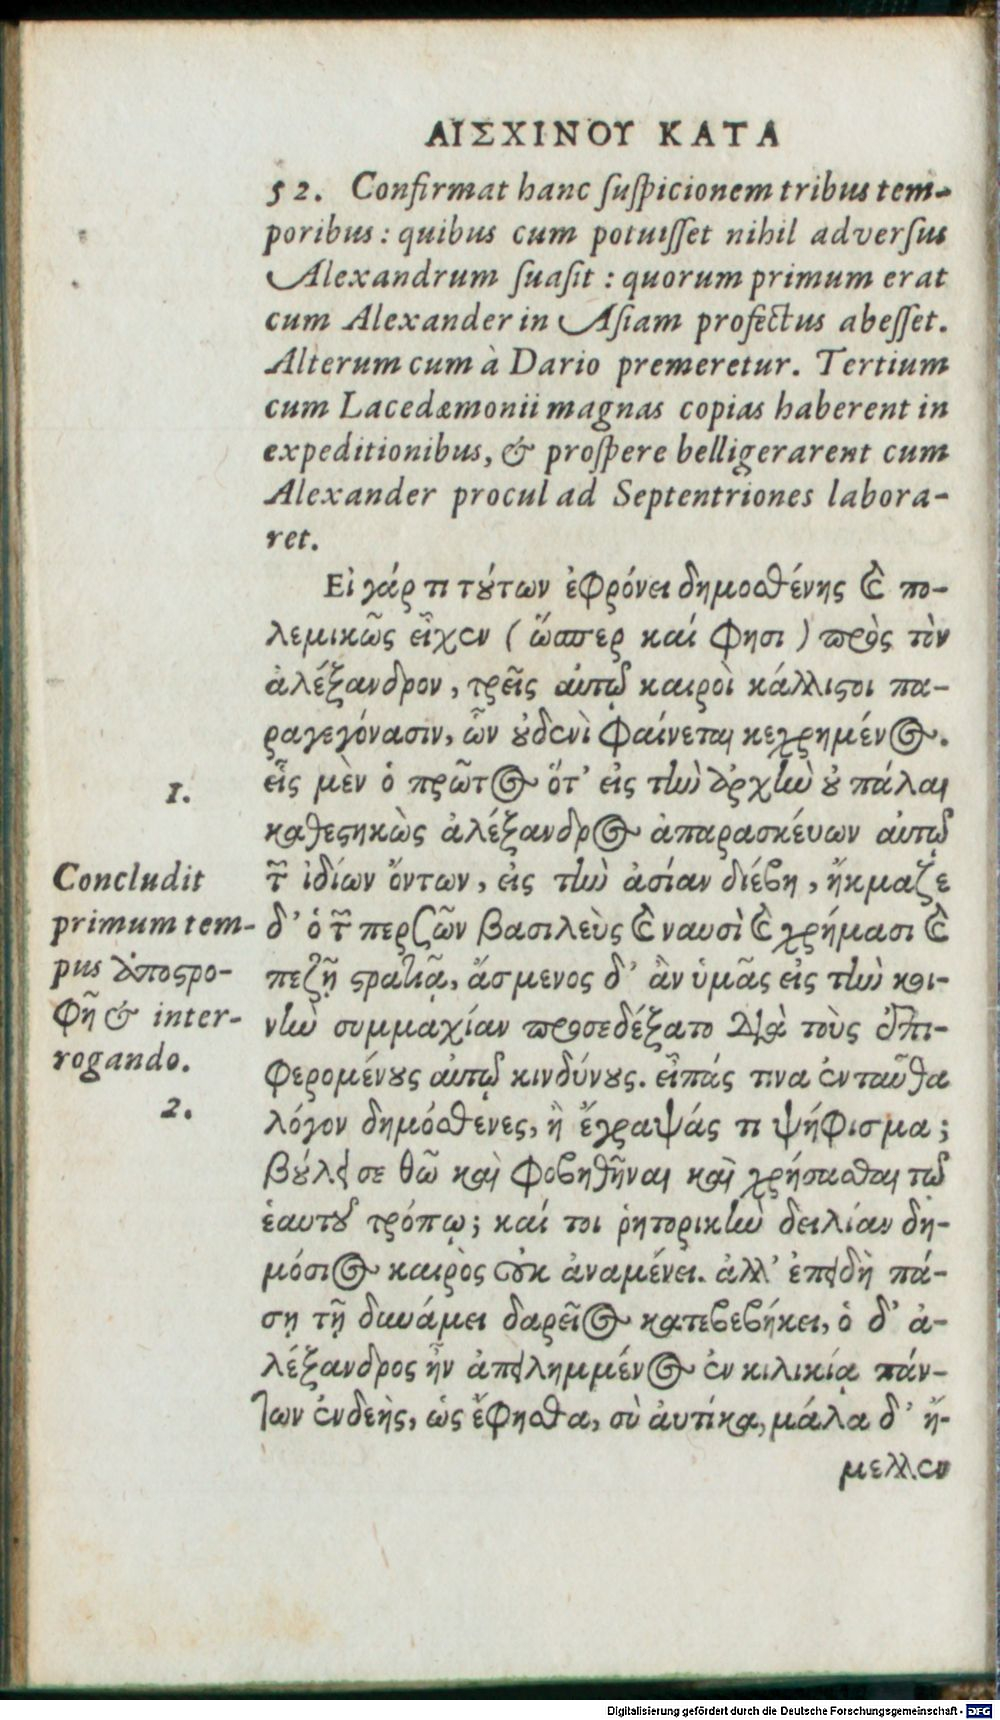 ΑΙΣΧΙΝΟΥ ΚΑΤΑ
52. Confirmat hanc ſuſpicionem tribus tem-
poribus: quibus cum potuiſſet nihil adverſus
Alexandrum ſuaſit: quorum primum erat
cum Alexander in Aſiam profectus abeſſet.
Alterum cum à Dario premeretur. Tertium
cum Lacedæmonii magnas copias haberent in
expeditionibus, & proſpere belligerarent cum
Alexander procul ad Septentriones labora-
ret.
Εἰ γάρ τι τȣ́των ἐφρόνει δημοσθένης ϗ πο-
λεμικῶς εἶχεν (ὥσπερ καί φησι) πρὸς τὸν
ἀλέξανδρον, τρεῖς αὐτῷ καιροὶ κάλλιϛοι πα-
ραγεγόνασιν, ὧν ȣ̓δενὶ φαίνεται κεχρημένος.
εἷς μὲν ὁ πρῶτος ὅτ' εἰς τὴν ἀρχὴν ȣ̓ πάλαι
καθεϛηκὼς ἀλέξανδρος ἀπαρασκέυων αὐτῷ
τῶν ἰδίων ὄντων, εἰς τὴν ἀσίαν διέβη, ἤκμαζε
δ' ὁ τῶν περσῶν βασιλεὺς ϗ ναυσὶ ϗ χρήμασι ϗ
πεζῇ ϛρατιᾷ, ἄσμενος δ' ἂν ὑμᾶς εἰς τὴν κοι-
νὴν συμμαχίαν προσεδέξατο διὰ τοὺς ἐπι-
φερομένȣς αὐτῷ κινδύνȣς. εἶπάς τινα ἐνταῦθα
λόγον δημόσθενες, ἢ ἔγραψάς τι ψήφισμα;
βȣ́λει σε θῶ καὶ φοβηθῆναι καὶ χρήσασθαι τῷ
ἑαυτȣ͂ τρόπῳ; καί τοι ῥητορικὴν δειλίαν δη-
μόσιος καιρὸς οὐκ ἀναμένει. ἀλλ' ἐπειδὴ πά-
σῃ τῇ δυνάμει δαρεῖος κατεβεβήκει, ὁ δ' ἀ-
λέξανδρος ἦν ἀπειλημμένος ἐν κιλικίᾳ πάν-
των ἐνδεὴς, ὡς ἔφησθα, σὺ ἀυτίκα, μάλα δ' ἤ-
μελλεν
1.
Concludit
primum tem-
pus ἀποϛρο-
φῇ & inter-
rogando.
2.
Digitalisierung gefördert durch die Deutsche Forschungsgemeinschaft - DFG